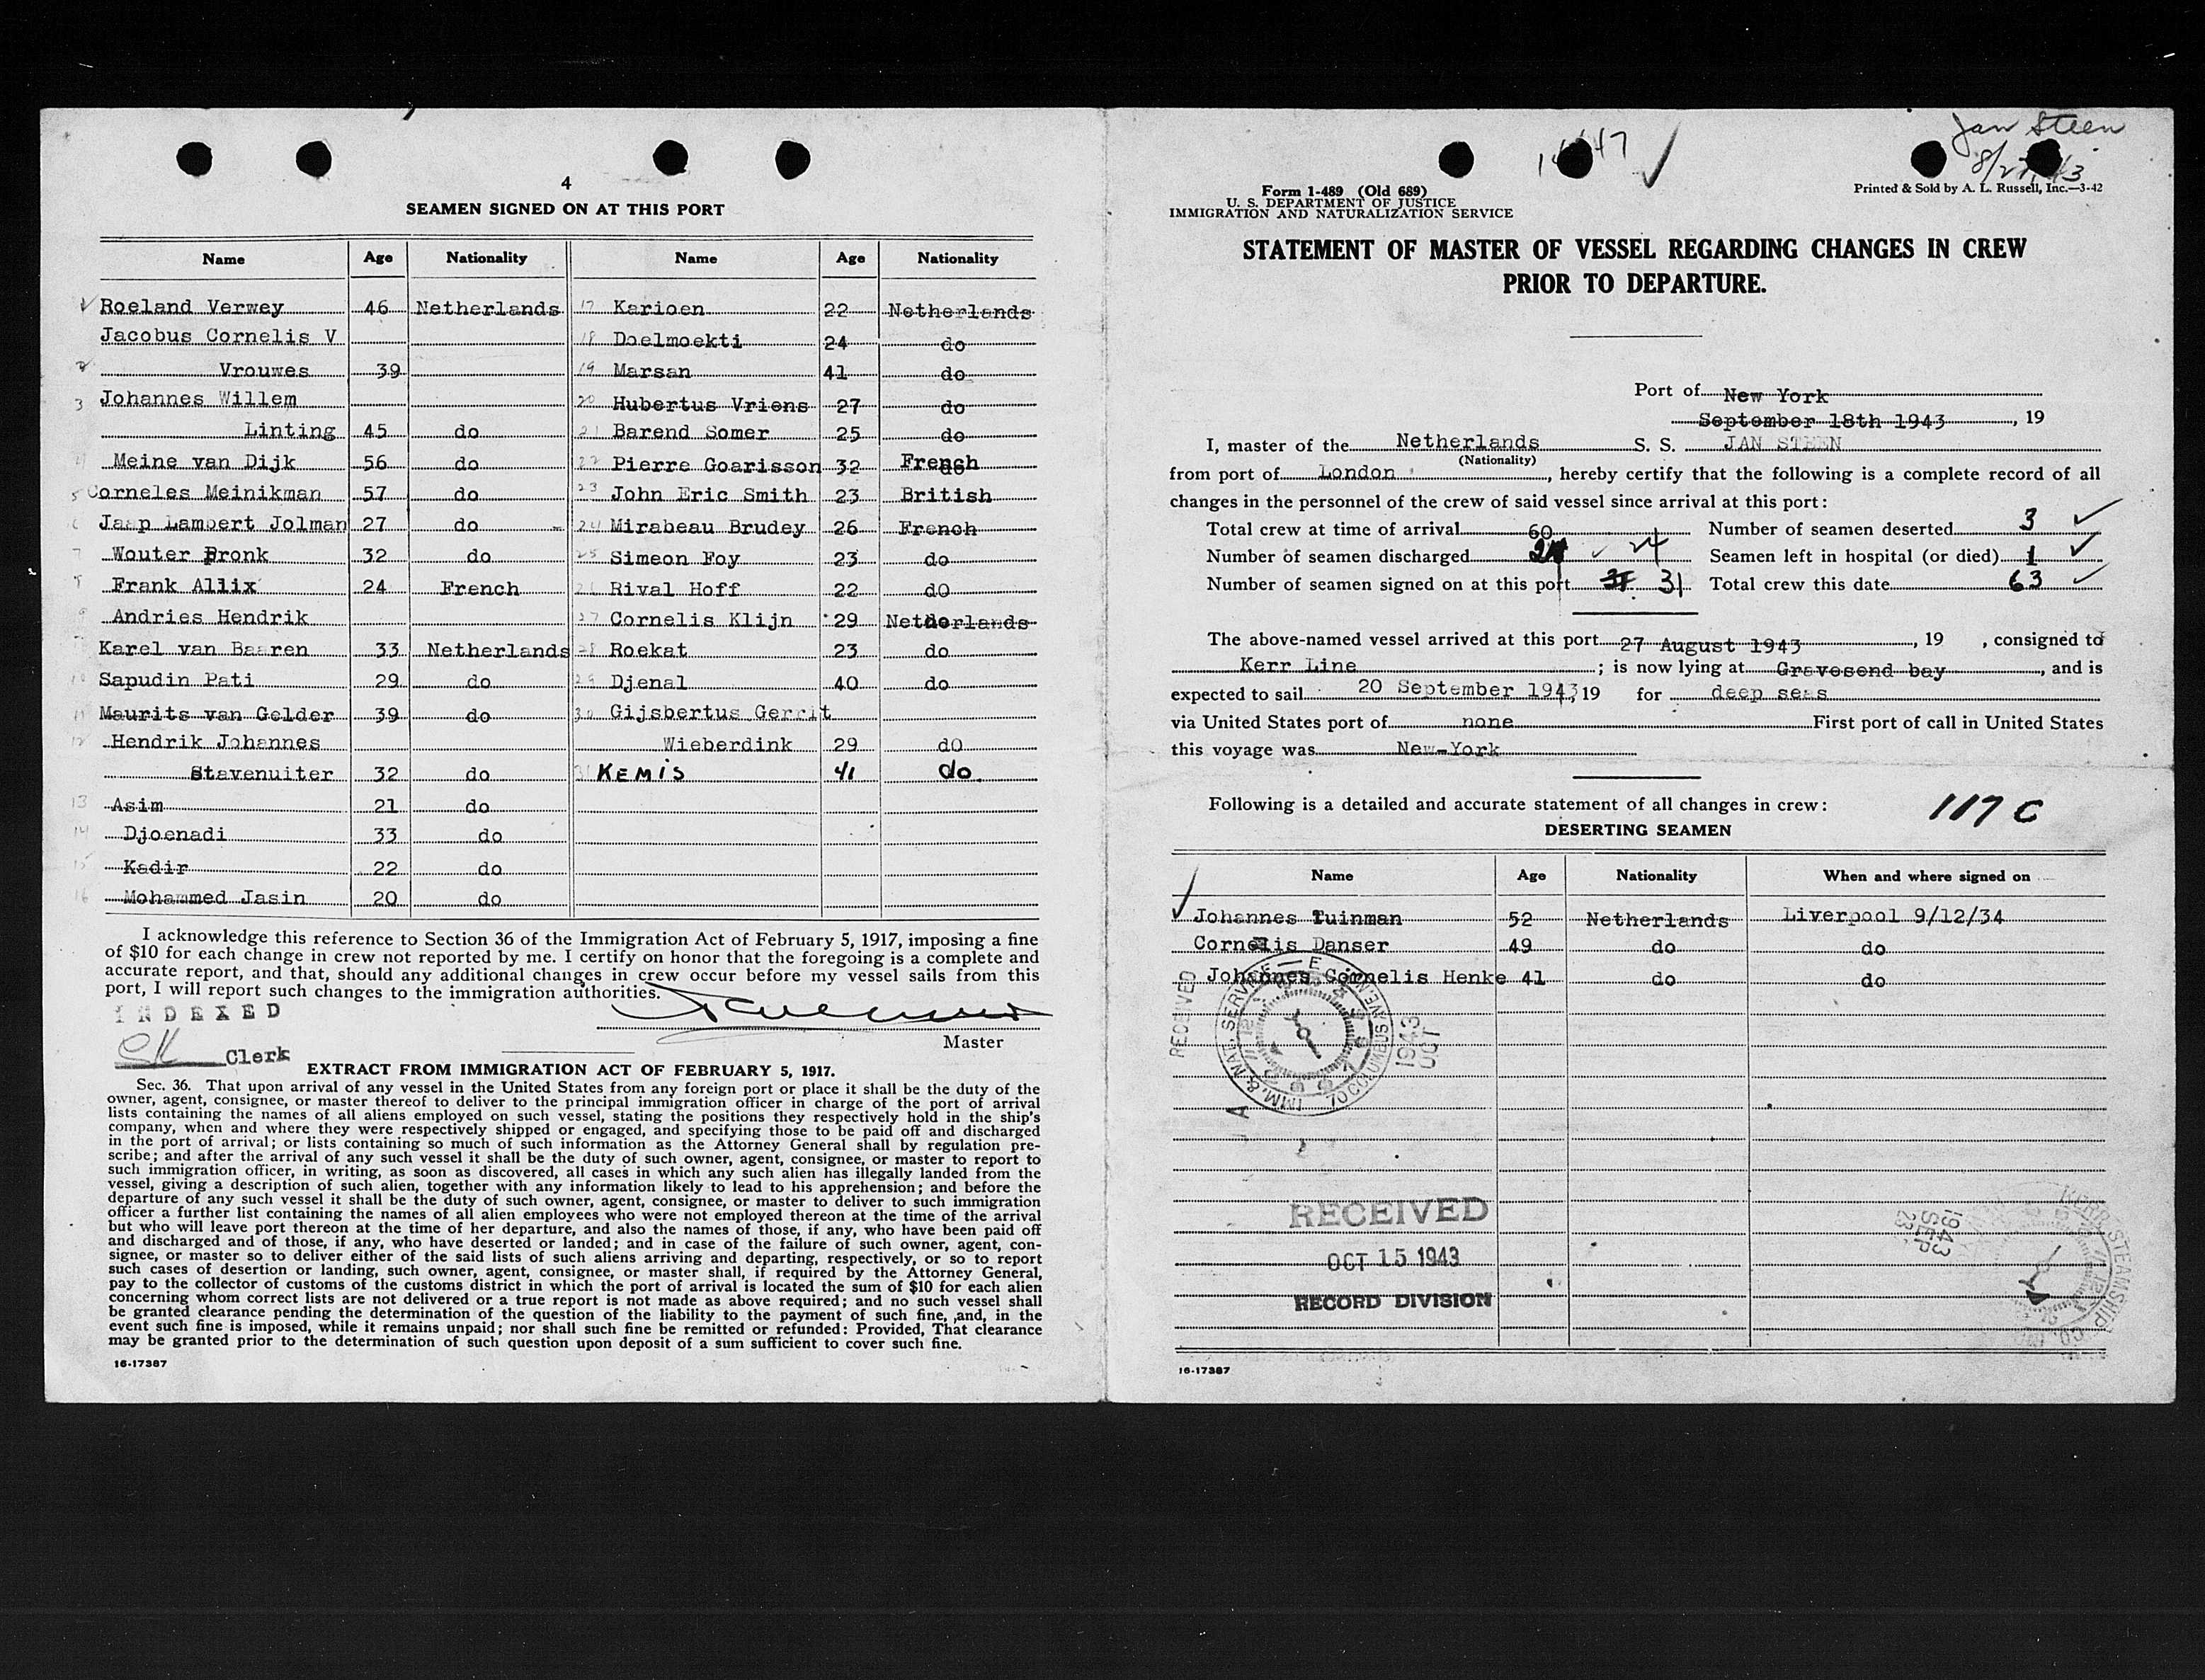 4
SEAMEN SIGNED ON AT THIS PORT
Name Age Nationality Name Age Nationality
Roeland Verwey 46 Netherlands 17 Karioen 22 Netherlands
Jacobus Cornelis V 18 Doelmoekti 24 do
2 Vrouwes 39 19 Marsan 41 do
3 Johannes Willem 20 Hubertus Vriens 27 do
Linting 45 do 21 Barend Somer 25 do
4 Meine van Dijk 56 do 22 Pierre Goarisson 32 French
5 Corneles Meinikman 57 do 23 John Eric Smith 23 British
6 Jaap Lambert Jolman 27 do 24 Mirabeau Brudey 26 French
7 Wouter Pronk 32 do 25 Simeon Foy 23 do
8 Frank Allix 24 French 26 Rival Hoff 22 dO
9 Andries Hendrik 27 Cornelis Klijn 29 Netherlands
Karel van Baaren 33 Netherlands 28 Roekat 23 do
10 Sapudin Pati 29 do 29 Djenal 40 do
11 Maurits van Gelder 39 do 30 Gijsbertus Gerrit
12 Hendrik Johannes Wieberdink 29 dO
Stavenuiter 32 do 31 KEMiS 41 do
13 Asim 21 do
14 Djoenadi 33 do
15 Kadir 22 do
16 Mohammed Jasin 20 do
I acknowledge this reference to Section 36 of the Immigration Act of February 5, 1917, imposing a fine
of $10 for each change in crew not reported by me. I certify on honor that the foregoing is a complete and
accurate report, and that, should any additional changes in crew occur before my vessel sails from this
port, I will report such changes to the immigration authorities.
INDEXED
Master
Clerk
EXTRACT FROM IMMIGRATION ACT OF FEBRUARY 5, 1917.
Sec. 36. That upon arrival of any vessel in the United States from any foreign port or place it shall be the duty of the
owner, agent, consignee, or master thereof to deliver to the principal immigration officer in charge of the port of arrival
lists containing the names of all aliens employed on such vessel, stating the positions they respectively hold in the ship's
company, when and where they were respectively shipped or engaged, and specifying those to be paid off and discharged
in the port of arrival; or lists containing so much of such information as the Attorney General shall by regulation pre-
scribe; and after the arrival of any such vessel it shall be the duty of such owner, agent, consignee, or master to report to
such immigration officer, in writing, as soon as discovered, all cases in which any such alien has illegally landed from the
vessel, giving a description of such alien, together with any information likely to lead to his apprehension; and before the
departure of any such vessel it shall be the duty of such owner, agent, consignee, or master to deliver to such immigration
officer a further list containing the names of all alien employees who were not employed thereon at the time of the arrival
but who will leave port thereon at the time of her departure, and also the names of those, if any, who have been paid off
and discharged and of those, if any, who have deserted or landed; and in case of the failure of such owner, agent, con-
signee, or master so to deliver either of the said lists of such aliens arriving and departing, respectively, or so to report
such cases of desertion or landing, such owner, agent, consignee, or master shall, if required by the Attorney General,
pay to the collector of customs of the customs district in which the port of arrival is located the sum of $10 for each alien
concerning whom correct lists are not delivered or a true report is not made as above required; and no such vessel shall
be granted clearance pending the determination of the question of the liability to the payment of such fine, and, in the
event such fine is imposed, while it remains unpaid; nor shall such fine be remitted or refunded: Provided, That clearance
may be granted prior to the determination of such question upon deposit of a sum sufficient to cover such fine.
16-17387
Jan Steen
Form 1-489 (Old 689)
U. S. DEPARTMENT OF JUSTICE
IMMIGRATION AND NATURALIZATION SERVICE
Printed & Sold by A. L. Russell, Inc.—3-42
STATEMENT OF MASTER OF VESSEL REGARDING CHANGES IN CREW
PRIOR TO DEPARTURE.
Port of New York
September 18th 1943, 19
I, master of the Netherlands S. S. JAN STEEN
(Nationality)
from port of London, hereby certify that the following is a complete record of all
changes in the personnel of the crew of said vessel since arrival at this port:
Total crew at time of arrival 60 Number of seamen deserted 3
Number of seamen discharged 24 Seamen left in hospital (or died) 1
Number of seamen signed on at this port 31 Total crew this date 63
The above-named vessel arrived at this port 27 August 1943, 19 , consigned to
Kerr Line; is now lying at Gravesend bay, and is
expected to sail 20 September 1943, 19 for deep seas
via United States port of none First port of call in United States
this voyage was New-York
Following is a detailed and accurate statement of all changes in crew: 117 C
DESERTING SEAMEN
Name Age Nationality When and where signed on
Johannes Tuinman 52 Netherlands Liverpool 9/12/34
Cornelis Danser 49 do do
Johannes Cornelis Henke 41 do do
RECEIVED
IMM. & NAT. SERVICE
70 COLUMBUS AVENUE
1943 OCT
RECEIVED
OCT 15 1943
RECORD DIVISION
KERR STEAMSHIP CO. INC
1943 SEP 23
16-17387